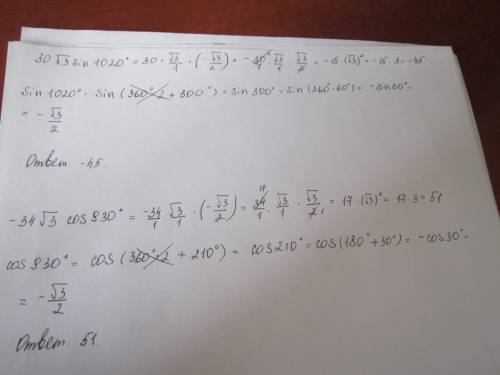 30 √3 sin 1020° = 30 · √3/1 · (-√3/2) = - 30/1 · √3/1 · √3/2 = -15 · (√3)² = -15 · 3 = -45
Sin 1020° = Sin (360°·2 + 300°) = sin 300° = sin (360°-60°) = -sin 60° =
= - √3/2
Ответ. -45.
-34 √3 cos 930° = -34/1 · √3/1 · (-√3/2) = 34/1 · √3/1 · √3/2 = 17 · (√3)² = 17 · 3 = 51
17
1
cos 930° = cos (360°·2 + 210°) = cos 210° = cos (180° + 30°) = - cos 30° =
= - √3/2
Ответ. 51.